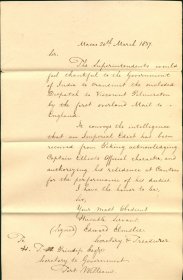 Macao 20th March 1837.
Sir,
The Superintendents would
feel thankful to the Government
of India to transmit the enclosed
Despatch to Viscount Palmerston
by the first overland Mail to
England.
It conveys the intelligence
that an Imperial Edict has been
received from Peking acknowledging
Captain Elliot's Official character, and
authorizing his residence at Canton
for the performance of his duties.
I have the honor to be,
Sir,
Your Most Obedient
Humble Servant
(Signed) Edward Elmslie
Secretary & Treasurer
To
H. T. Prinsep Esqre
Secretary to Government
Fort William